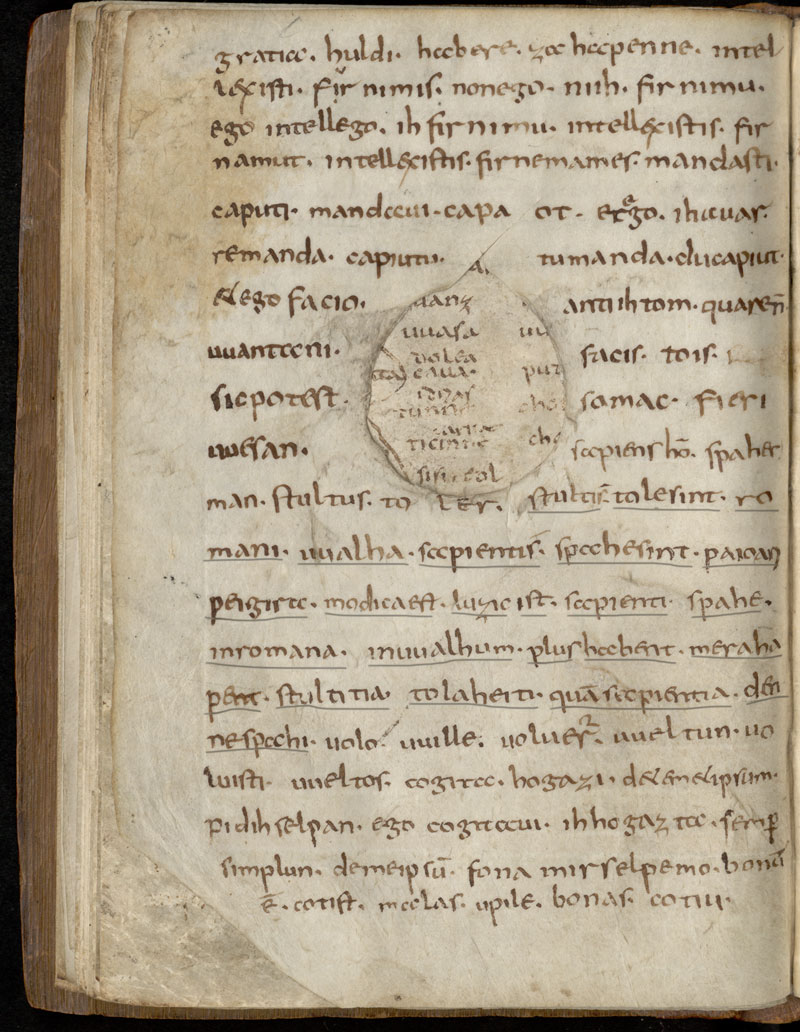 gratia. huldi. habere. za hapenne. intel
lexisti. firnimis. non ego. niih. firnimu.
ego intellego. ih firnimu. intellexistis. fir
namut. intellexistis. firnemames. mandasti.
caputi. mandaui. capa ot. ergo. ih auar.
remanda. capiutu. tu manda. du capiut.
et ego facio. anti ih tom. quare n̄
uuanta ni. facis. tois.
sic potest. so mac. fieri
uuesan. sapiens hō. spaher
man. stultus. to ler. stulti s̄ tole sint. ro
mani. uualha. sapientis. spahe sint. paioari
peigira. modica est. luzic ist. sapienti. spahe.
in romana. in uualhum. plus habent. mera ha
pent. stultitia. tolaheiti. quā sapientia. den
ne spahi. uolo. uuille. uoluer. uueltun. uo
luisti. uueltos. cogita. hogazi. de temetipsum.
pi dih selpan. ego cogitaui. ih hogazta. semp̄
simplun. de meipsū. fona mir selpemo. bonū
ē. cot ist. malas. upile. bonas. cotiu.